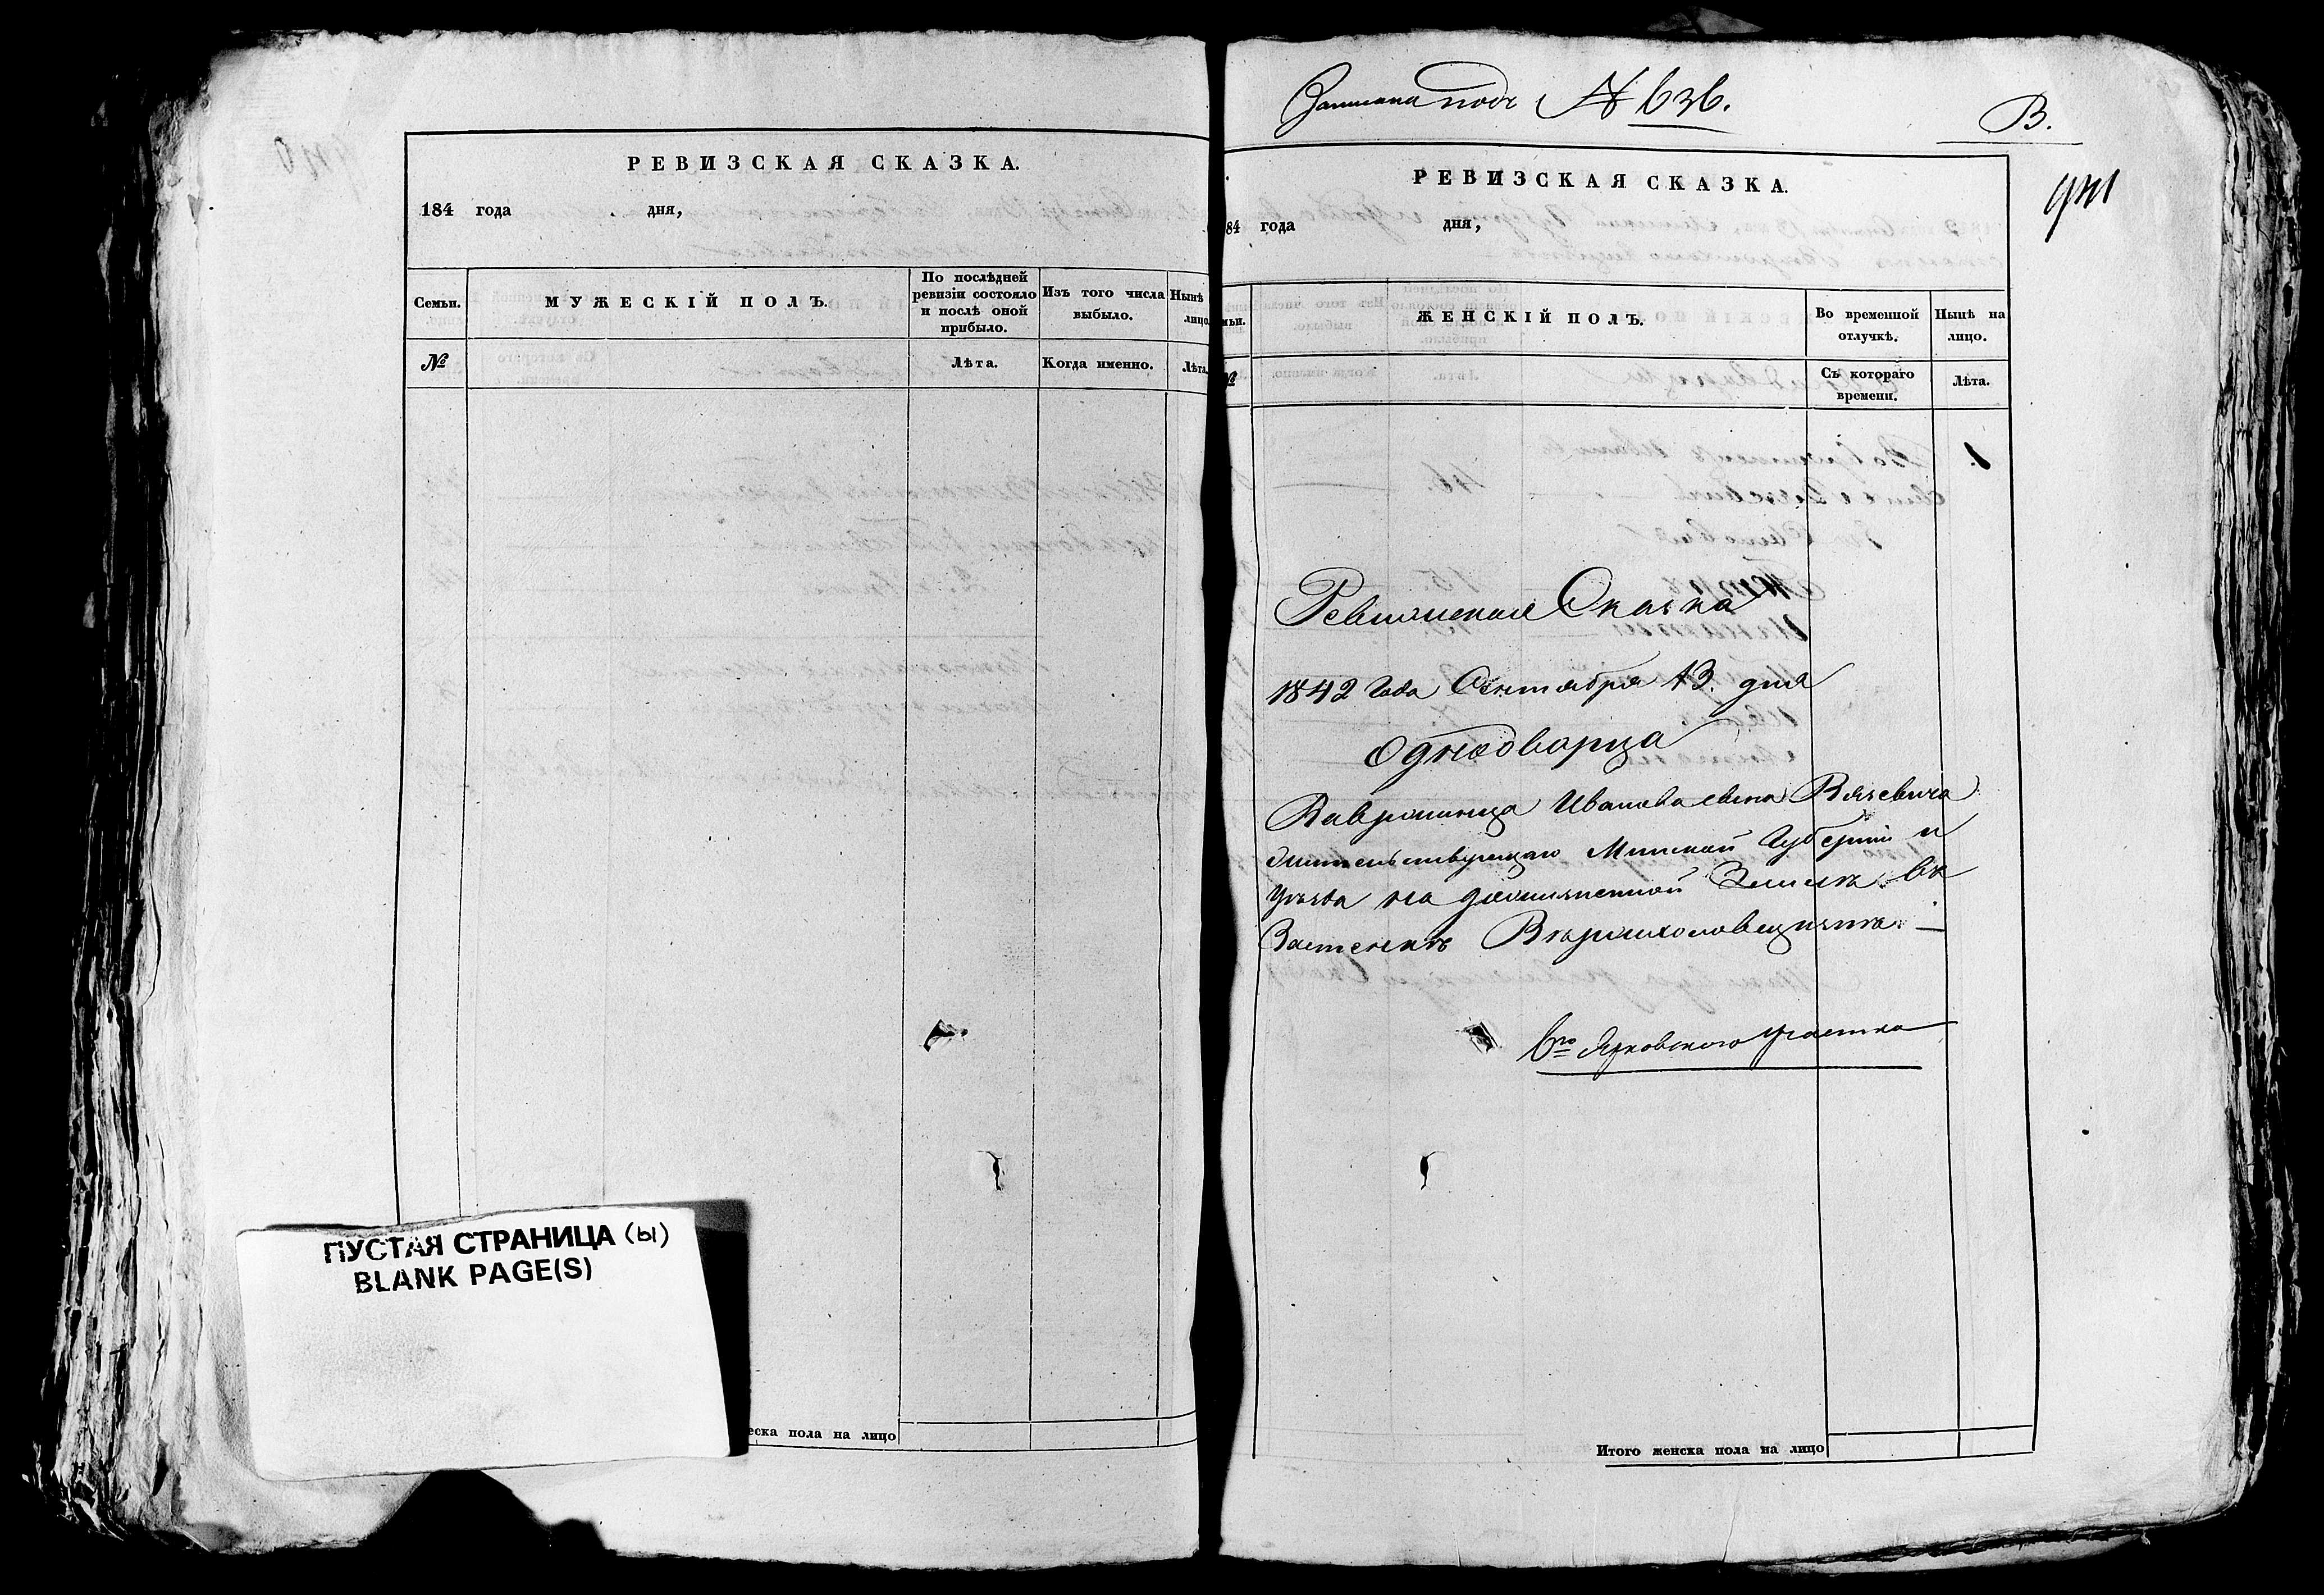 РЕВИЗСКАЯ СКАЗКА.
184 года дня,
Семьи.
МУЖЕСКІЙ ПОЛЪ.
По послѣдней
ревизіи состояло
и послѣ оной
прибыло.
Изъ того числа
выбыло.
Нынѣ
лицо
№
Лѣта.
Когда именно.
Лѣта.
ПУСТАЯ СТРАНИЦА (ы)
BLANK PAGE(S)
еска пола на лицо
Записана подъ № 636.
В.
941
РЕВИЗСКАЯ СКАЗКА.
84 года дня,
мьи.
ЖЕНСКІЙ ПОЛЪ.
Во временной
отлучкѣ.
Нынѣ на
лицо.
№
Съ котораго
времени.
Лѣта.
Ревизская Сказка
1842 года Сентября 13. дня
Однодворца
Вавринца Иванова сына Вязевича
жительствующаго Минской Губерніи и
уѣзда на Землѣ въ
Застенкѣ
6го участка
Итого женска пола на лицо